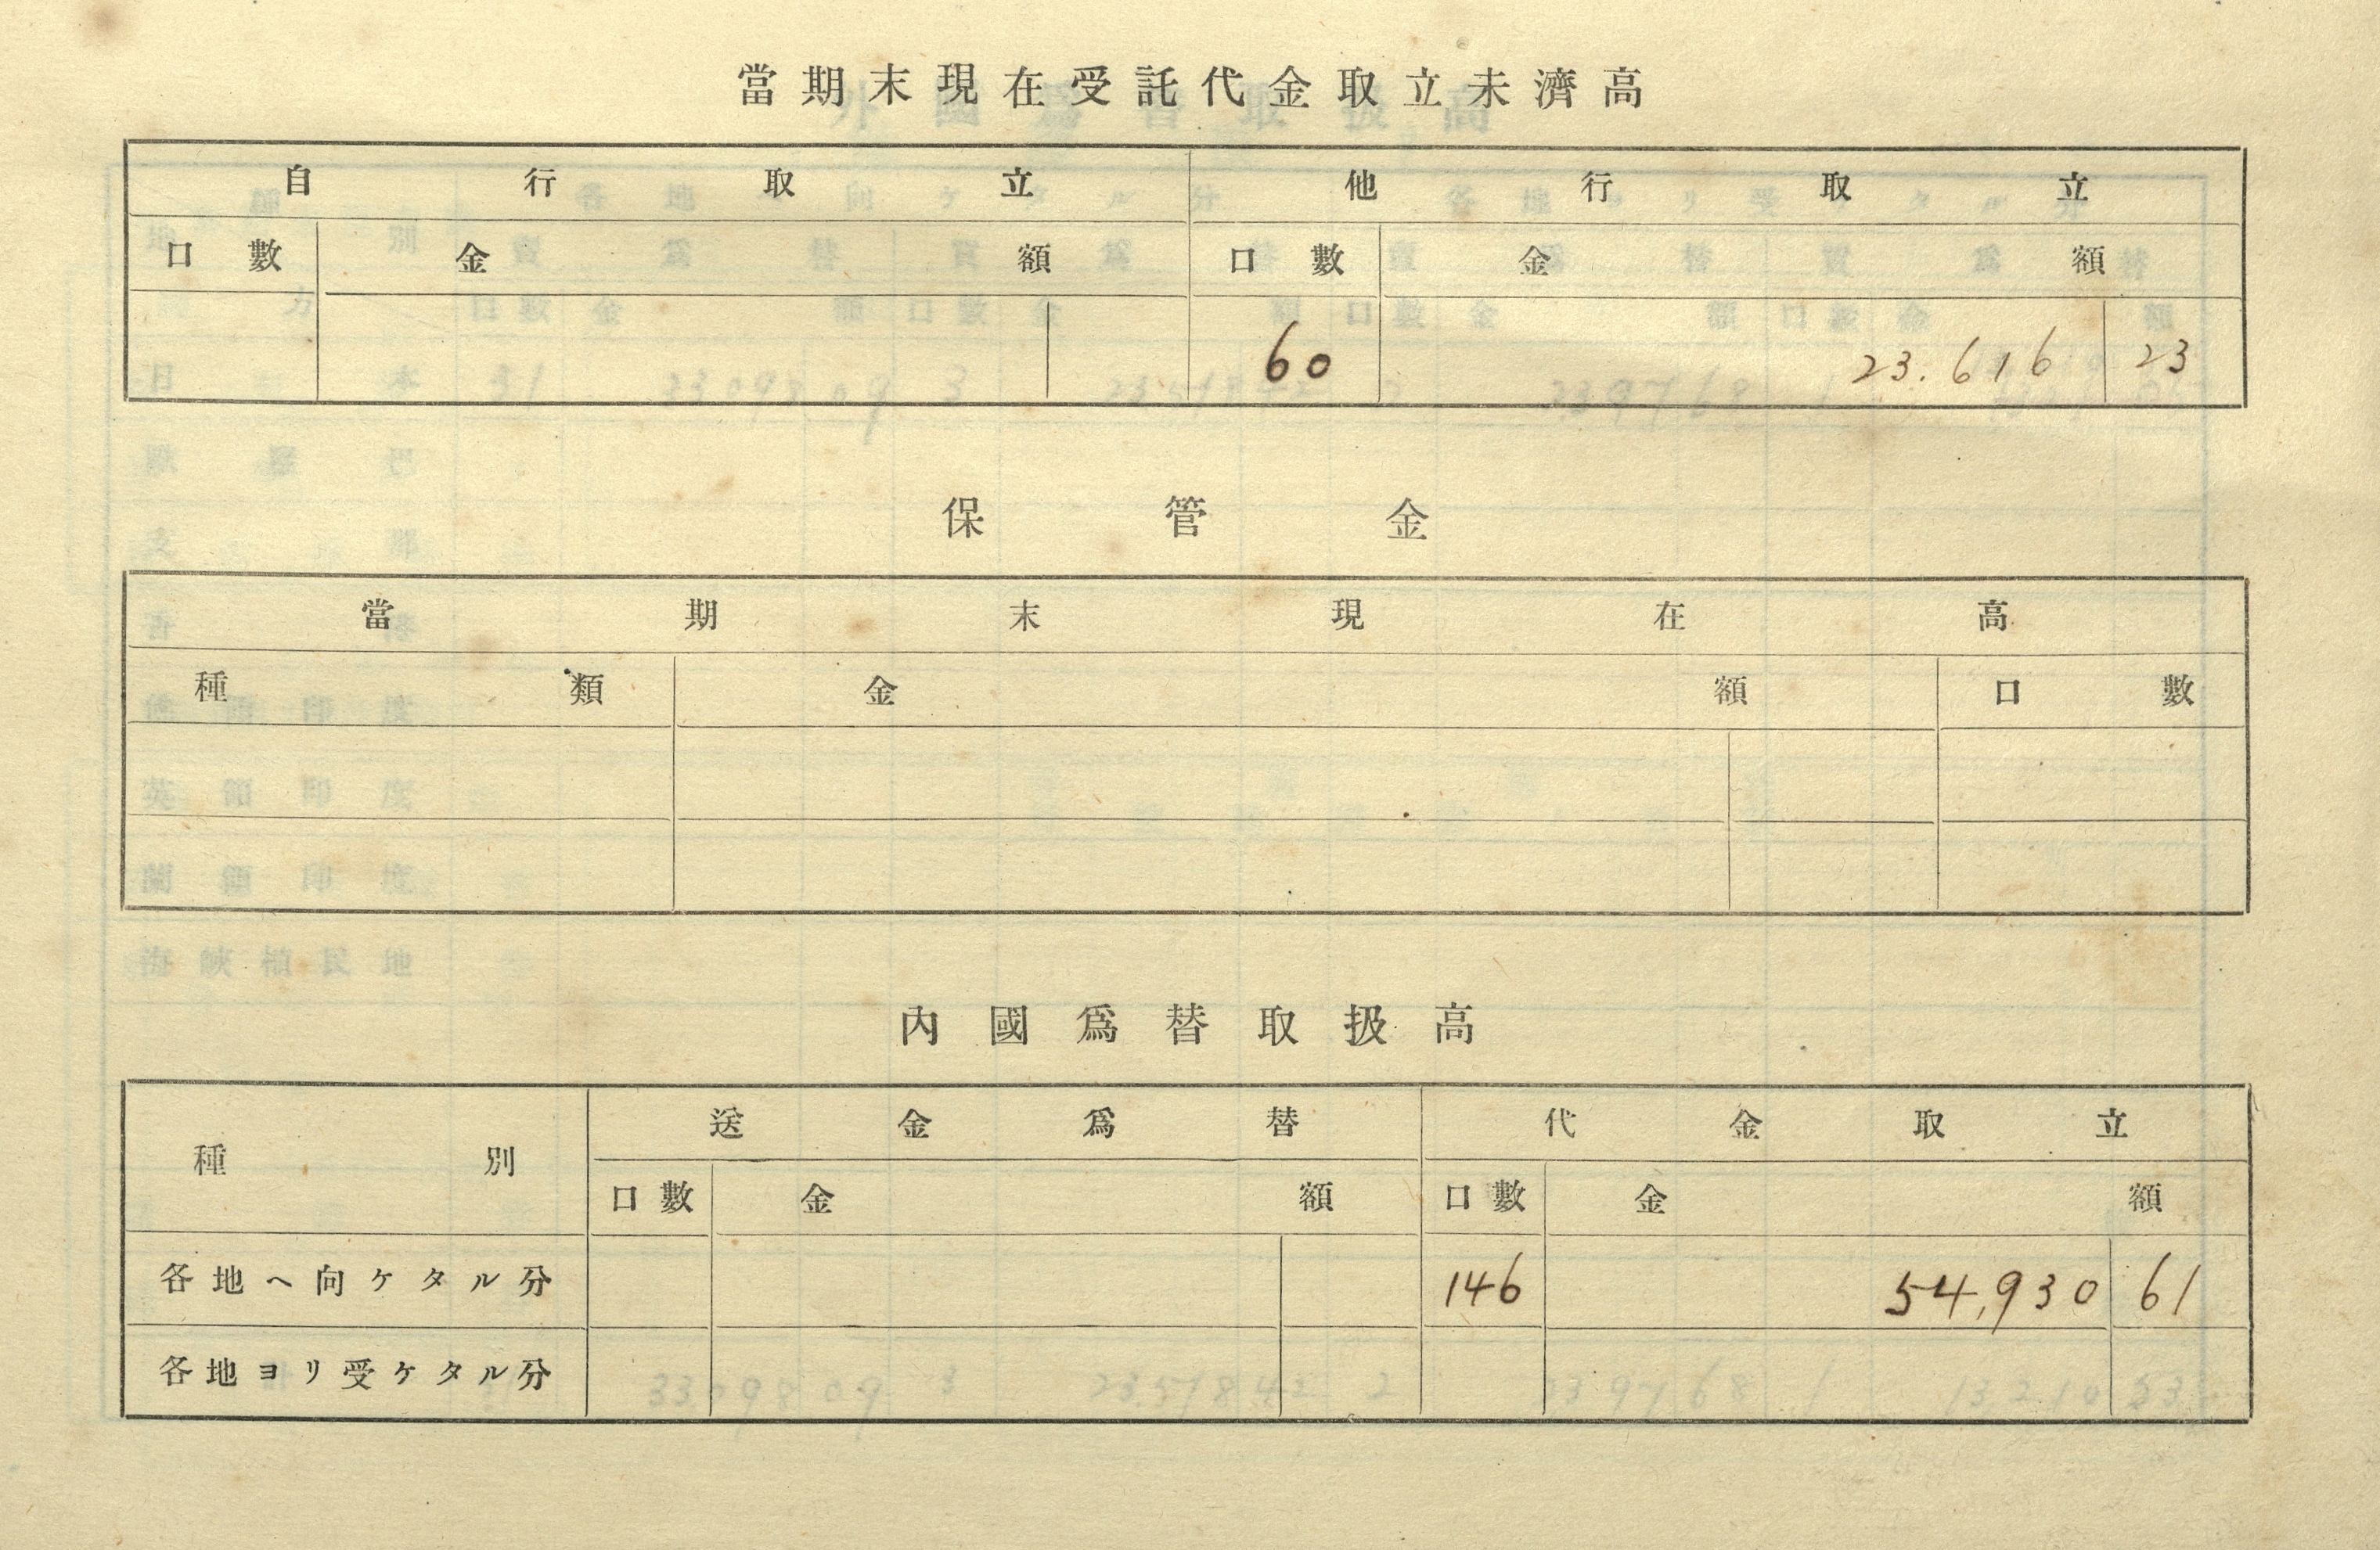 當期末現在受託代金取立未濟高
自行取立 他行取立
口數 金額 口數 金額
60 23.616 23
保管金
當期末現在高
種類 金額 口數
內國爲替取扱高
種別 送金爲替 代金取立
口數 金額 口數 金額
各地ヘ向ケタル分 146 54,930 61
各地ヨリ受ケタル分